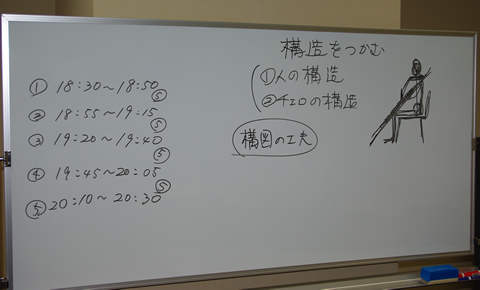 ① 18:30～18:50
⑤
② 18:55～19:15
⑤
③ 19:20～19:40
⑤
④ 19:45～20:05
⑤
⑤ 20:10～20:30
構造をつかむ
①人の構造
②チェロの構造
構図の工夫